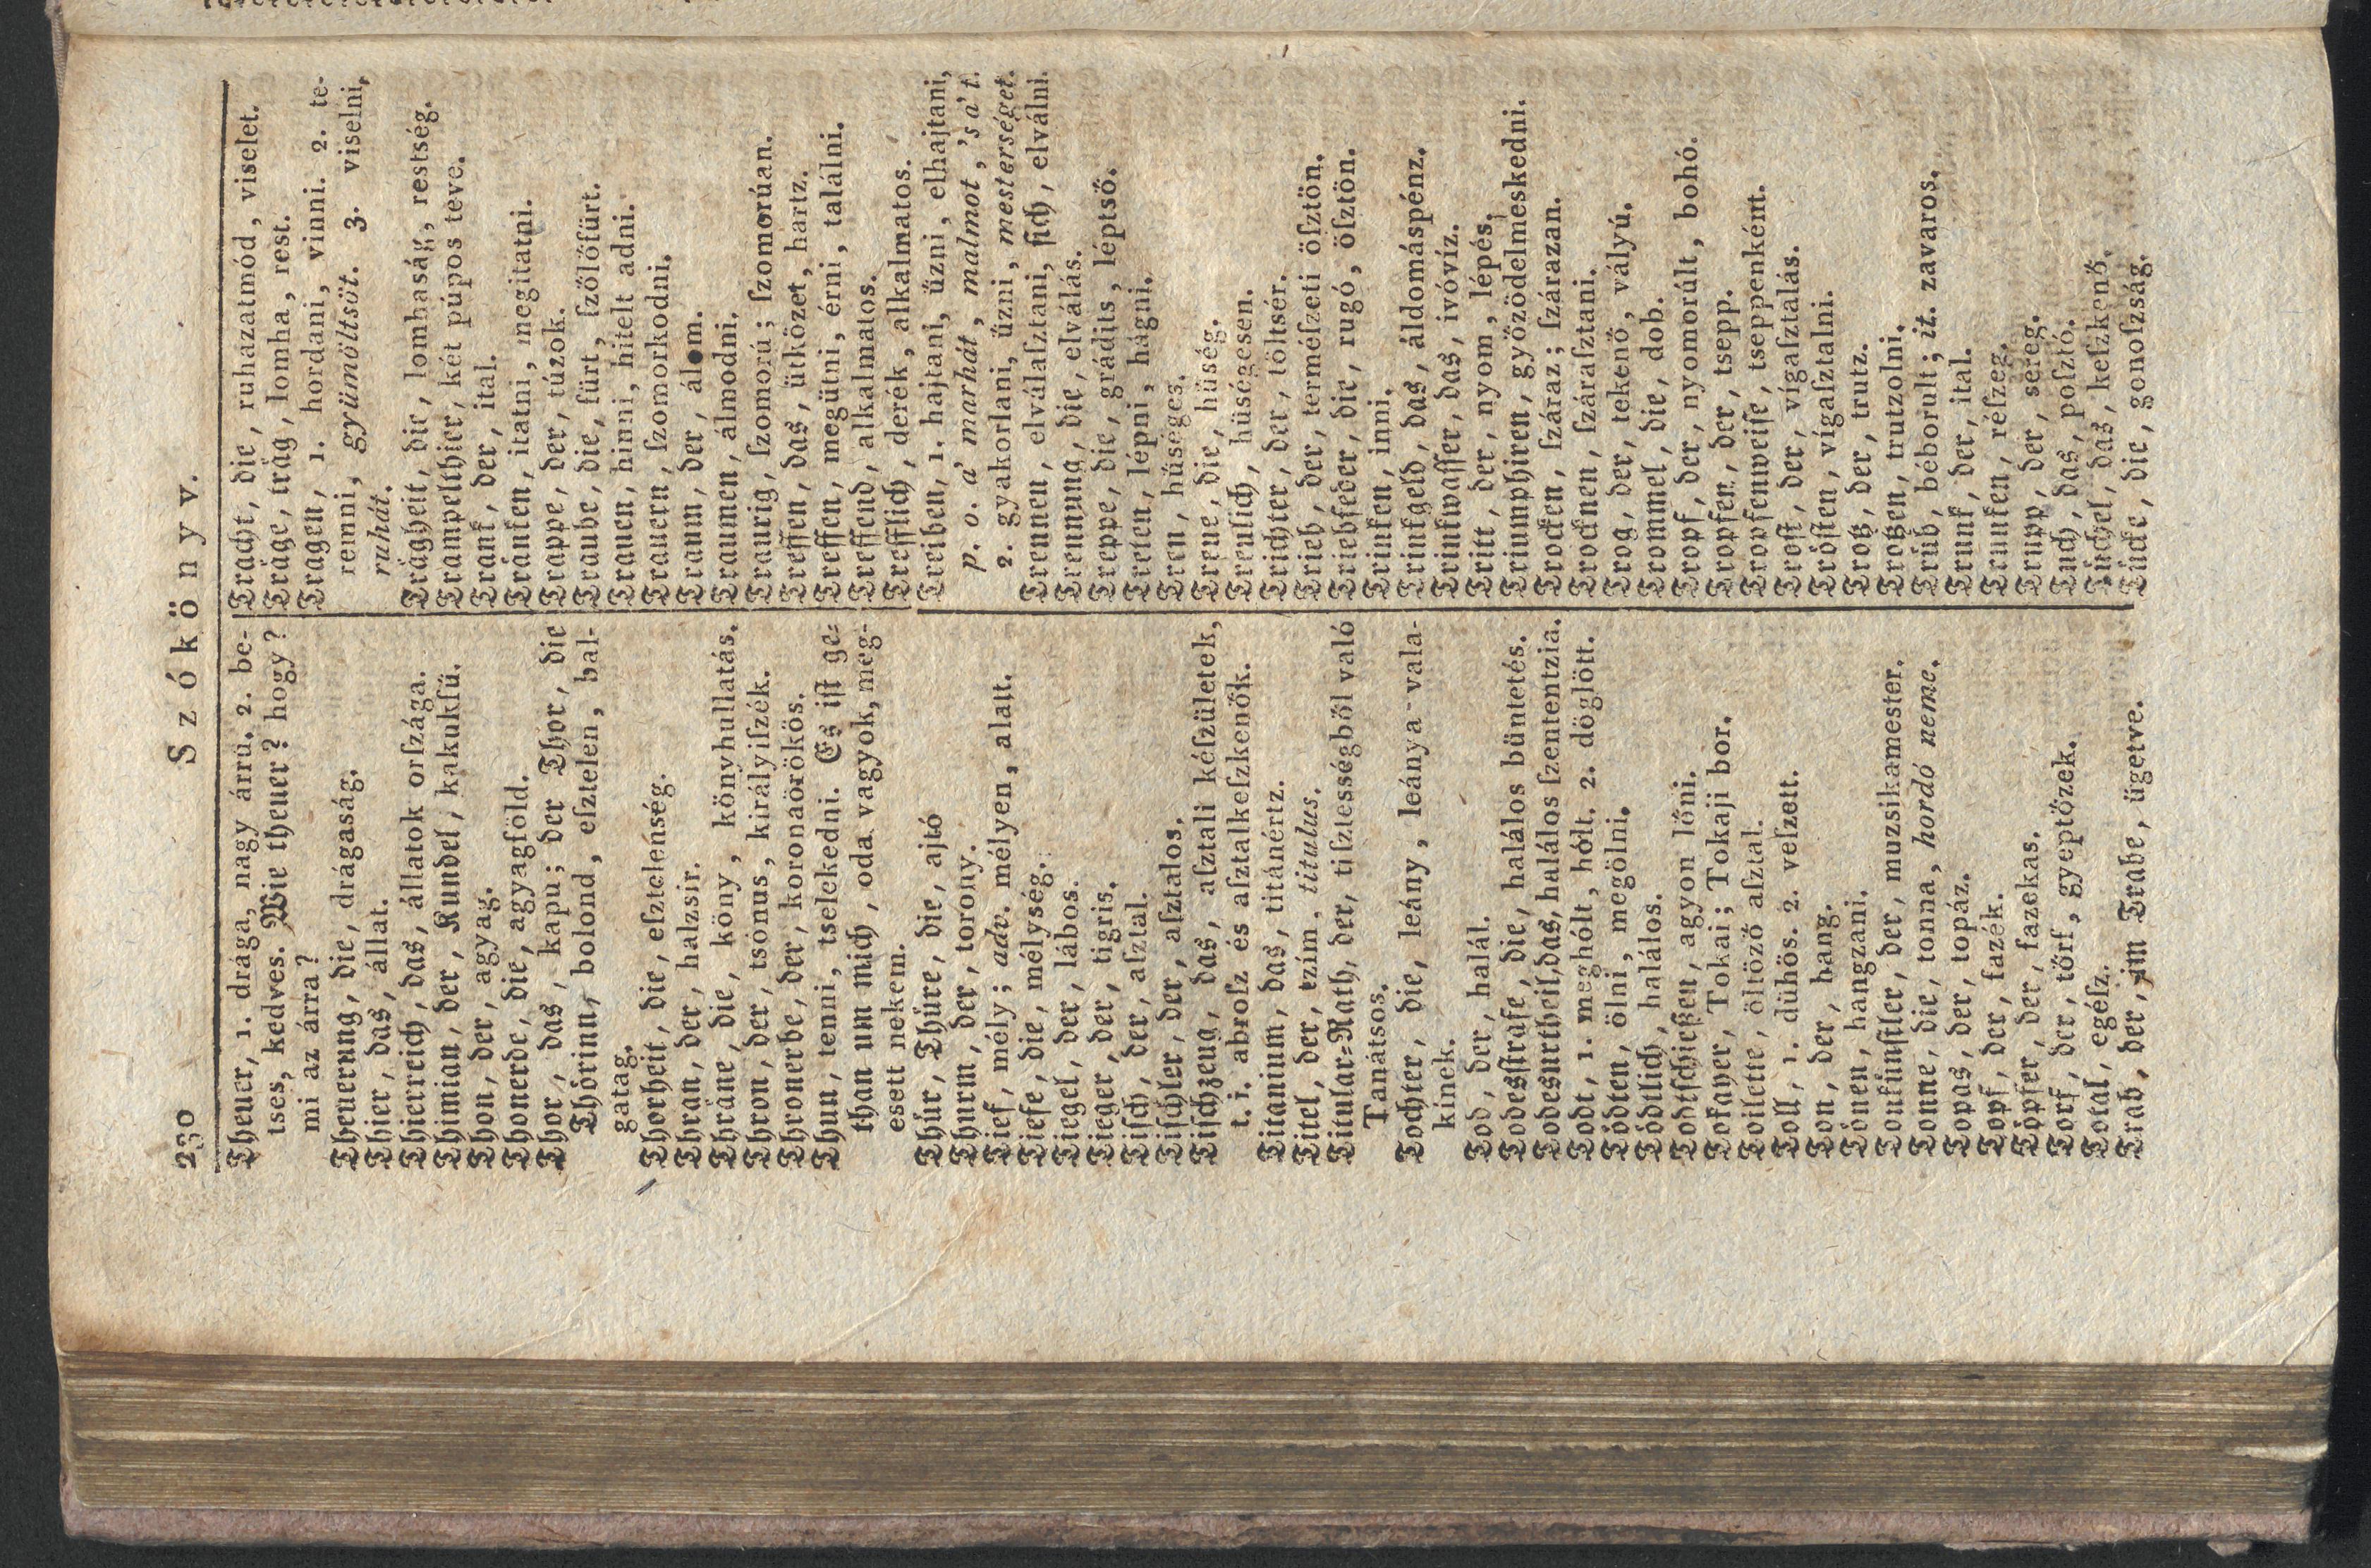 230
Szókönyv.
Theuer, 1. drága, nagy árru. 2. be-
tses, kedves. Wie theuer? hogy?
mi az árra?
Theuerung, die, drágaság.
Thier, das, állat.
Thierreich, das, állatok orſzága.
Thimian, der, Kundel, kakukſü.
Thon, der, agyag.
Thonerde, die, agyagföld.
Thor, das, kapu; der Thor, die
Thörinn, bolond, eſztelen, bal-
gatag.
Thorheit, die, eſztelenség.
Thran, der, halzsír.
Thräne, die, köny, könyhullatás.
Thron, der, tsónus, királyiſzék.
Thronerbe, der, koronaörökös.
Thun, tenni, tselekedni. Es iſt ge-
than um mich, oda vagyok, meg-
esett nekem.
Thür, Thüre, die, ajtó
Thurm, der, torony.
Tief, mély; adv. mélyen, alatt.
Tiefe, die, mélység.
Tiegel, der, lábos.
Tieger, der, tigris.
Tiſch, der, aſztal.
Tiſchler, der, aſztalos.
Tiſchzeug, das, aſztali kéſzületek,
t. i. abroſz és aſztalkeſzkenők.
Titanium, das, titánértz.
Titel, der, tzím, titulus.
Titular-Rath, der, tiſztességből való
Tanátsos.
Tochter, die, leány, leánya-vala-
kinek.
Tod, der, halál.
Todesſtrafe, die, halálos büntetés.
Todesurtheil, das, halálos ſzententzia.
Todt, 1. meghólt, hólt. 2. döglött.
Tödten, ölni, megölni.
Tödtlich, halálos.
Todtſchießen, agyon lőni.
Tokayer, Tokai; Tokaji bor.
Toilette, öltöző aſztal.
Toll, 1. dühös. 2. veſzett.
Ton, der, hang.
Tönen, hangzani.
Tonkünſtler, der, muzsikamester.
Tonne, die, tonna, hordó neme.
Topas, der, topáz.
Topf, der, fazék.
Töpfer, der, fazekas.
Torf, der, törf, gyeptőzek.
Total, egéſz.
Trab, der, im Trabe, ügetve.
Tracht, die, ruházatmód, viselet.
Träge, träg, lomha, rest.
Tragen, 1. hordani, vinni. 2. te-
remni, gyümöltsöt. 3. viselni,
ruhát.
Trägheit, die, lomhaság, restség.
Trampelthier, két púpos teve.
Trank, der, ital.
Tränken, itatni, megitatni.
Trappe, der, túzok.
Traube, die, fürt, ſzőlőfürt.
Trauen, hinni, hitelt adni.
Trauern, ſzomorkodni.
Traum, der, álom.
Traumen, álmodni.
Traurig, ſzomorú; ſzomorúan.
Treffen, das, ütközet, hartz.
Treffen, megütni, érni, találni.
Treffend, alkalmatos.
Trefflich, derék, alkalmatos.
Treiben, 1. hajtani, űzni, elhajtani,
p. o. a' marhát, malmot, 'sa't.
2. gyakorlani, űzni, mesterséget.
Trennen, elválaſztani, ſich, elválni.
Trennung, die, elválás.
Treppe, die, grádits, léptső.
Treten, lépni, hágni.
Treu, hűséges.
Treue, die, hűség.
Treulich, hűségesen.
Trichter, der, töltsér.
Trieb, der, terméſzeti öſztön.
Triebfeder, die, rugó, öſztön.
Trinken, inni.
Trinkgeld, das, áldomáspénz.
Trinkwaſſer, das, ivóvíz.
Tritt, der, nyom, lépés.
Triumphiren, győzödelmeskedni.
Trocken, ſzáraz; ſzárazan.
Trocknen, ſzáraſztani.
Trog, der, tekenő, vályú.
Trommel, die, dob.
Tropf, der, nyomorúlt, bohó.
Tropfen, der, tsepp.
Tropfenweiſe, tseppenként.
Troſt, der, vígaſztalás.
Tröſten, vígaſztalni.
Trotz, der, trutz.
Trotzen, trutzolni.
Trüb, béborult; it. zavaros.
Trunk, der, ital.
Trunken, réſzeg.
Trupp, der, sereg.
Tuch, das, poſztó.
Tüchel, das, keſzkenő.
Tücke, die, gonoſzság.